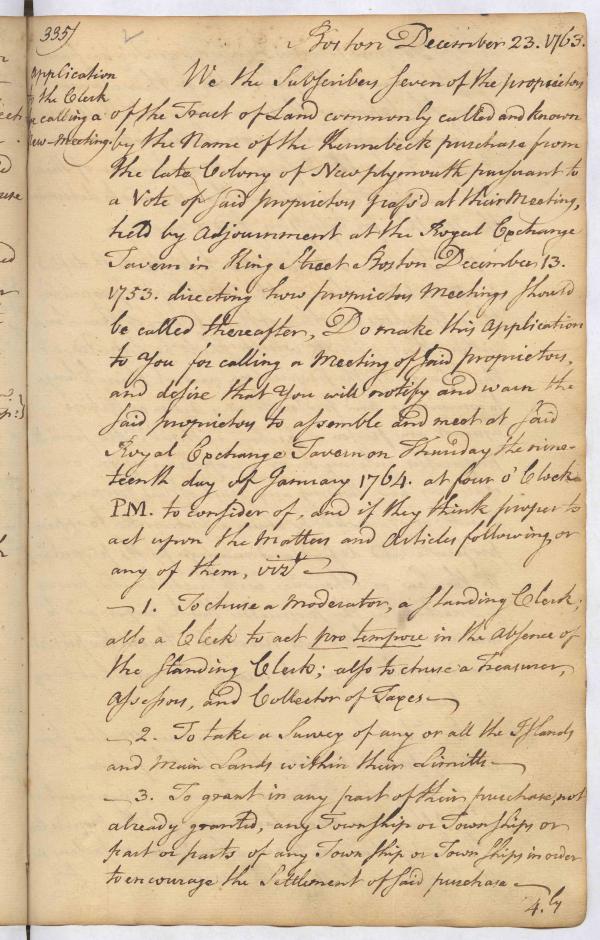 335)
Boston December 23. 1763.
Application
to the Clerk
for calling a
New-Meeting.
We the Subscribers seven of the proprietors
of the Tract of Land commonly called and known
by the Name of the Kennebeck purchase from
the late Colony of Newplymouth pursuant to
a Vote of said proprietors pass'd at their Meeting,
held by Adjournment at the Royal Exchange
Tavern in King Street Boston December 13.
1753. directing how proprietors Meetings should
be called thereafter, Do make this Application
to You for calling a Meeting of said proprietors,
and desire that You will notify and warn the
said proprietors to assemble and meet at said
Royal Exchange Tavern on Thursday the nine-
teenth day of January 1764. at four o'Clock
P.M. to consider of, and if they think proper to
act upon the Matters and Articles following, or
any of them, vizt
1. To chuse a Moderator, a standing Clerk,
also a Clerk to act pro tempore in the Absence of
the standing Clerk; also to chuse a Treasurer,
Assessors, and Collector of Taxes
2. To take a Survey of any or all the Islands
and Main Lands within their Limitts
3. To grant in any part of their purchase, not
already granted, any Township or Townships or
part or parts of any Township or Townships in order
to encourage the Settlement of said purchase
4.ly